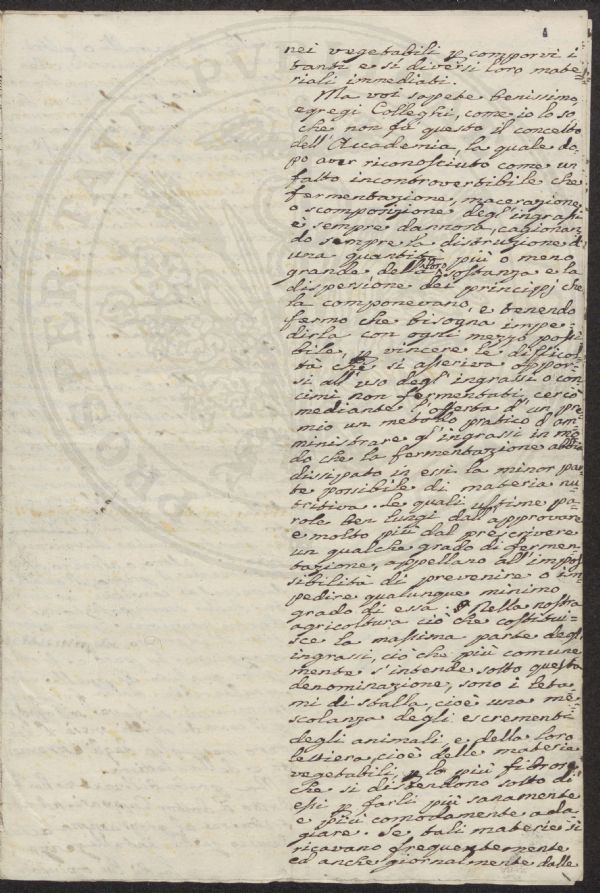 nei vegetabili p comporvi i
tanti e sì diversi loro mate=
riali immediati.
Ma voi sapete benissimo,
egregi Colleghi, come io lo so
che non fù questo il concetto
dell'Accademia, la quale do,
po aver riconosciuto come un
fatto incontrovertibile che
fermentazione, macerazione,
o scomposizione degl'ingrassi
è sempre dannosa, cagionan,
do sempre la distruzione di
una quantità più o meno
grande della loro sostanza e la
dispersione dei principj che
la componevano, e tenendo
fermo che bisogna impe=
dirla con ogni mezzo possi
bile, p vincere le difficol=
tà che si asseriva oppor=
si all'uso degl'ingrassi o con
cimi non fermentati, cercò
mediante l'offerta d'un pre
mio un metodo pratico d'am
ministrare gl'ingrassi in mo
do che la fermentazione abbia
dissipato in essi la minor par
te possibile di materia nu
tritiva. Le quali ultime pa=
role ben lungi dall'approvare
e molto più dal prescrivere
un qualche grado di fermen=
tazione, appellano all'impos
sibilità di prevenire o im
pedire qualunque minimo
grado di essa. Nella nostra
agricoltura ciò che costitui=
sce la massima parte degli
ingrassi, ciò che più comune
mente s'intende sotto questa
denominazione, sono i leta=
mi di stalla, cioè una me=
scolanza degli escrementi
degli animali e della loro
lettiera, cioè delle materie
vegetabili, p lo più fibrose
che si distendono sotto di
essi p farli più sanamente
e più comodamente ada=
giare. Se tali materie si
ricavano frequentemente
ed anche giornalmente dalle